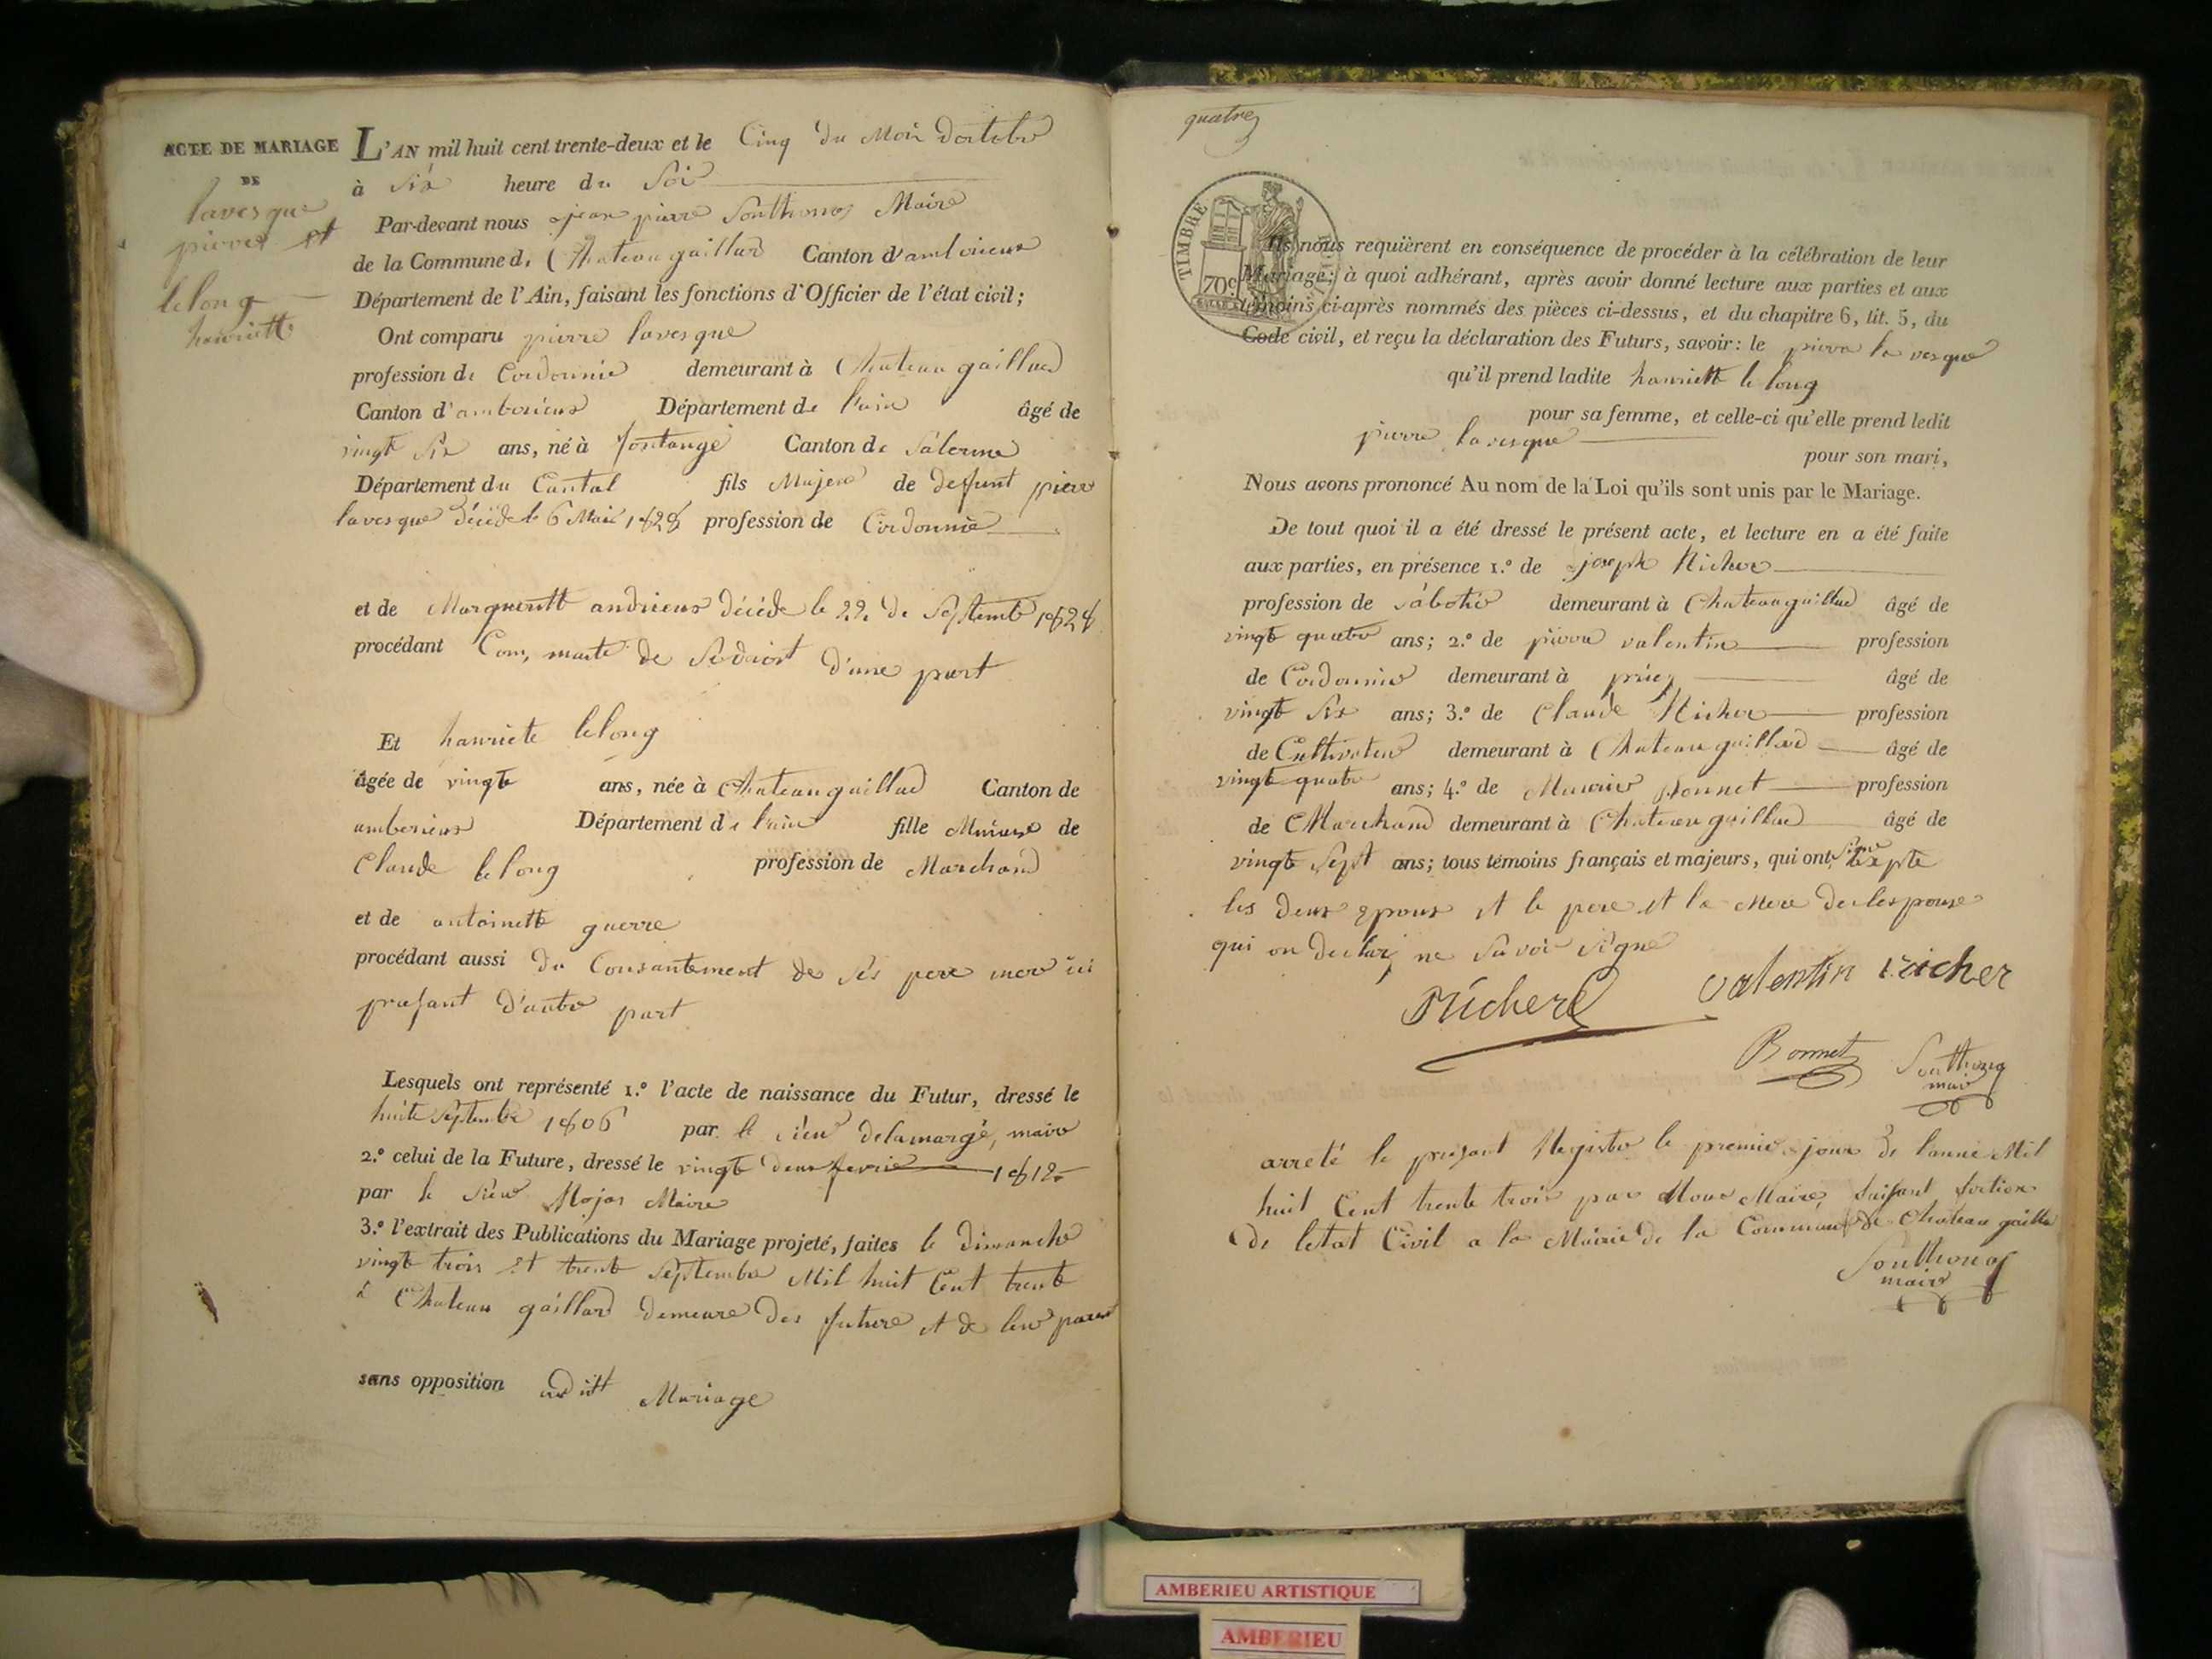 ACTE DE MARIAGE
DE
lavesque
pierre et
lelong
hanriette
L'AN mil huit cent trente-deux et le Cinq du Moi doctobre
à Six heure du Soir
Par-devant nous jean pierre Southonod Maire
de la Commune de Chateau gaillard Canton d'amberieux
Département de l'Ain, faisant les fonctions d'Officier de l'état civil;
Ont comparu pierre lavesque
profession de Cordonnie demeurant à Chateau gaillard
Canton d'amberieux Département de l'ain âgé de
vingt Six ans, né à fontange Canton de Salerme
Département du Cantal fils Majeur de defunt piere
lavesque décéde le 6 Mai 1828 profession de Cordonnie
et de Marguerite andrieux décéde le 22 de Septembre 1828
procédant Com, maitre de Sedroit d'une part
Et hanriete lelong
âgée de vingt ans, née à Chateau gaillard Canton de
amberieux Département de l'ain fille Mineure de
Claude lelong profession de Marchand
et de antoinette guerre
procédant aussi du Consantement de Ses pere mere ici
presant d'autre part
Lesquels ont représenté 1.º l'acte de naissance du Futur, dressé le
huite Septembre 1806 par le Sieur delamarge, maire
2.º celui de la Future, dressé le vingt deux fevrie 1812
par le Sieur Mojas Maire
3.º l'extrait des Publications du Mariage projeté, faites le dimanche
vingt trois et trente Septembre Mil huit Cent trente
à Chateau gaillard demeure des future et de leur parent
sans opposition audit Mariage
quatre
TIMBRE
70c
Ils nous requièrent en conséquence de procéder à la célébration de leur
Mariage: à quoi adhérant, après avoir donné lecture aux parties et aux
témoins ci-après nommés des pièces ci-dessus, et du chapitre 6, tit. 5, du
Code civil, et reçu la déclaration des Futurs, savoir: le pierre la vesque
qu'il prend ladite hanriette le long
pour sa femme, et celle-ci qu'elle prend ledit
pierre lavesque
pour son mari,
Nous avons prononcé Au nom de la Loi qu'ils sont unis par le Mariage.
De tout quoi il a été dressé le présent acte, et lecture en a été faite
aux parties, en présence 1.º de joseph Richer
profession de Sabotie demeurant à Chateau gaillard âgé de
vingt quatre ans; 2.º de pierre valentin profession
de Cordonnie demeurant à âgé de
vingt Six ans; 3.º de Claude Richer profession
de Cultivateur demeurant à Chateau gaillard âgé de
vingt quatre ans; 4.º de Maurice Bonnet profession
de Marchand demeurant à Chateau gaillard âgé de
vingt Sept ans; tous témoins français et majeurs, qui ont signé exepté
les deux epoux et le pere et la Mere de lespouse
qui on declaré ne Savoir Signe
Richer Valentin richer
Bonnet Southonod
maire
arreté le presant Registre le premie jour de lanné Mil
huit Cent trente trois par Nous Maire faisant fontion
de letat Civil a la Mairie de la Commune de Chateau gaillar
Southonod
maire
AMBERIEU ARTISTIQUE
AMBERIEU